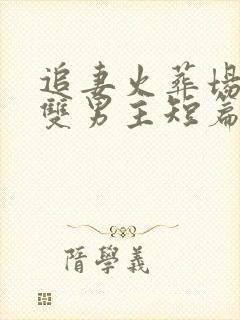 追妻火葬場
雙男主短篇
隋學義